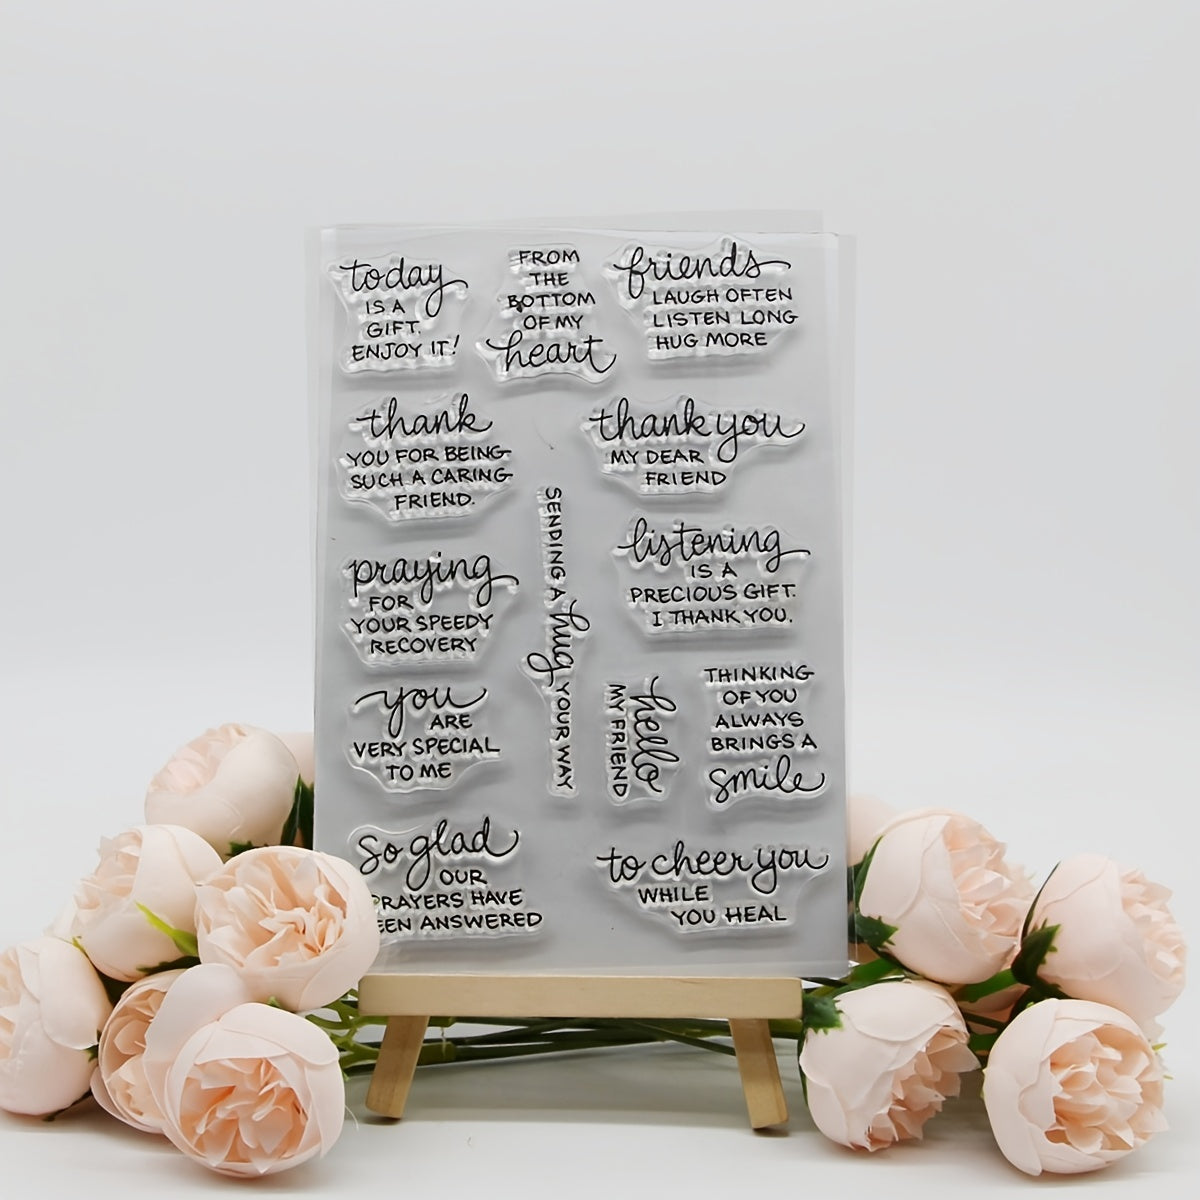 today
IS A
GIFT.
ENJOY IT!
FROM
THE
BOTTOM
OF MY
heart
friends
LAUGH OFTEN
LISTEN LONG
HUG MORE
thank
YOU FOR BEING
SUCH A CARING
FRIEND.
thank you
MY DEAR
FRIEND
SENDING A hug YOUR WAY
listening
IS A
PRECIOUS GIFT.
I THANK YOU.
praying
FOR
YOUR SPEEDY
RECOVERY
you
ARE
VERY SPECIAL
TO ME
hello
MY FRIEND
THINKING
OF YOU
ALWAYS
BRINGS A
smile
so glad
OUR
PRAYERS HAVE
EEN ANSWERED
to cheer you
WHILE
YOU HEAL